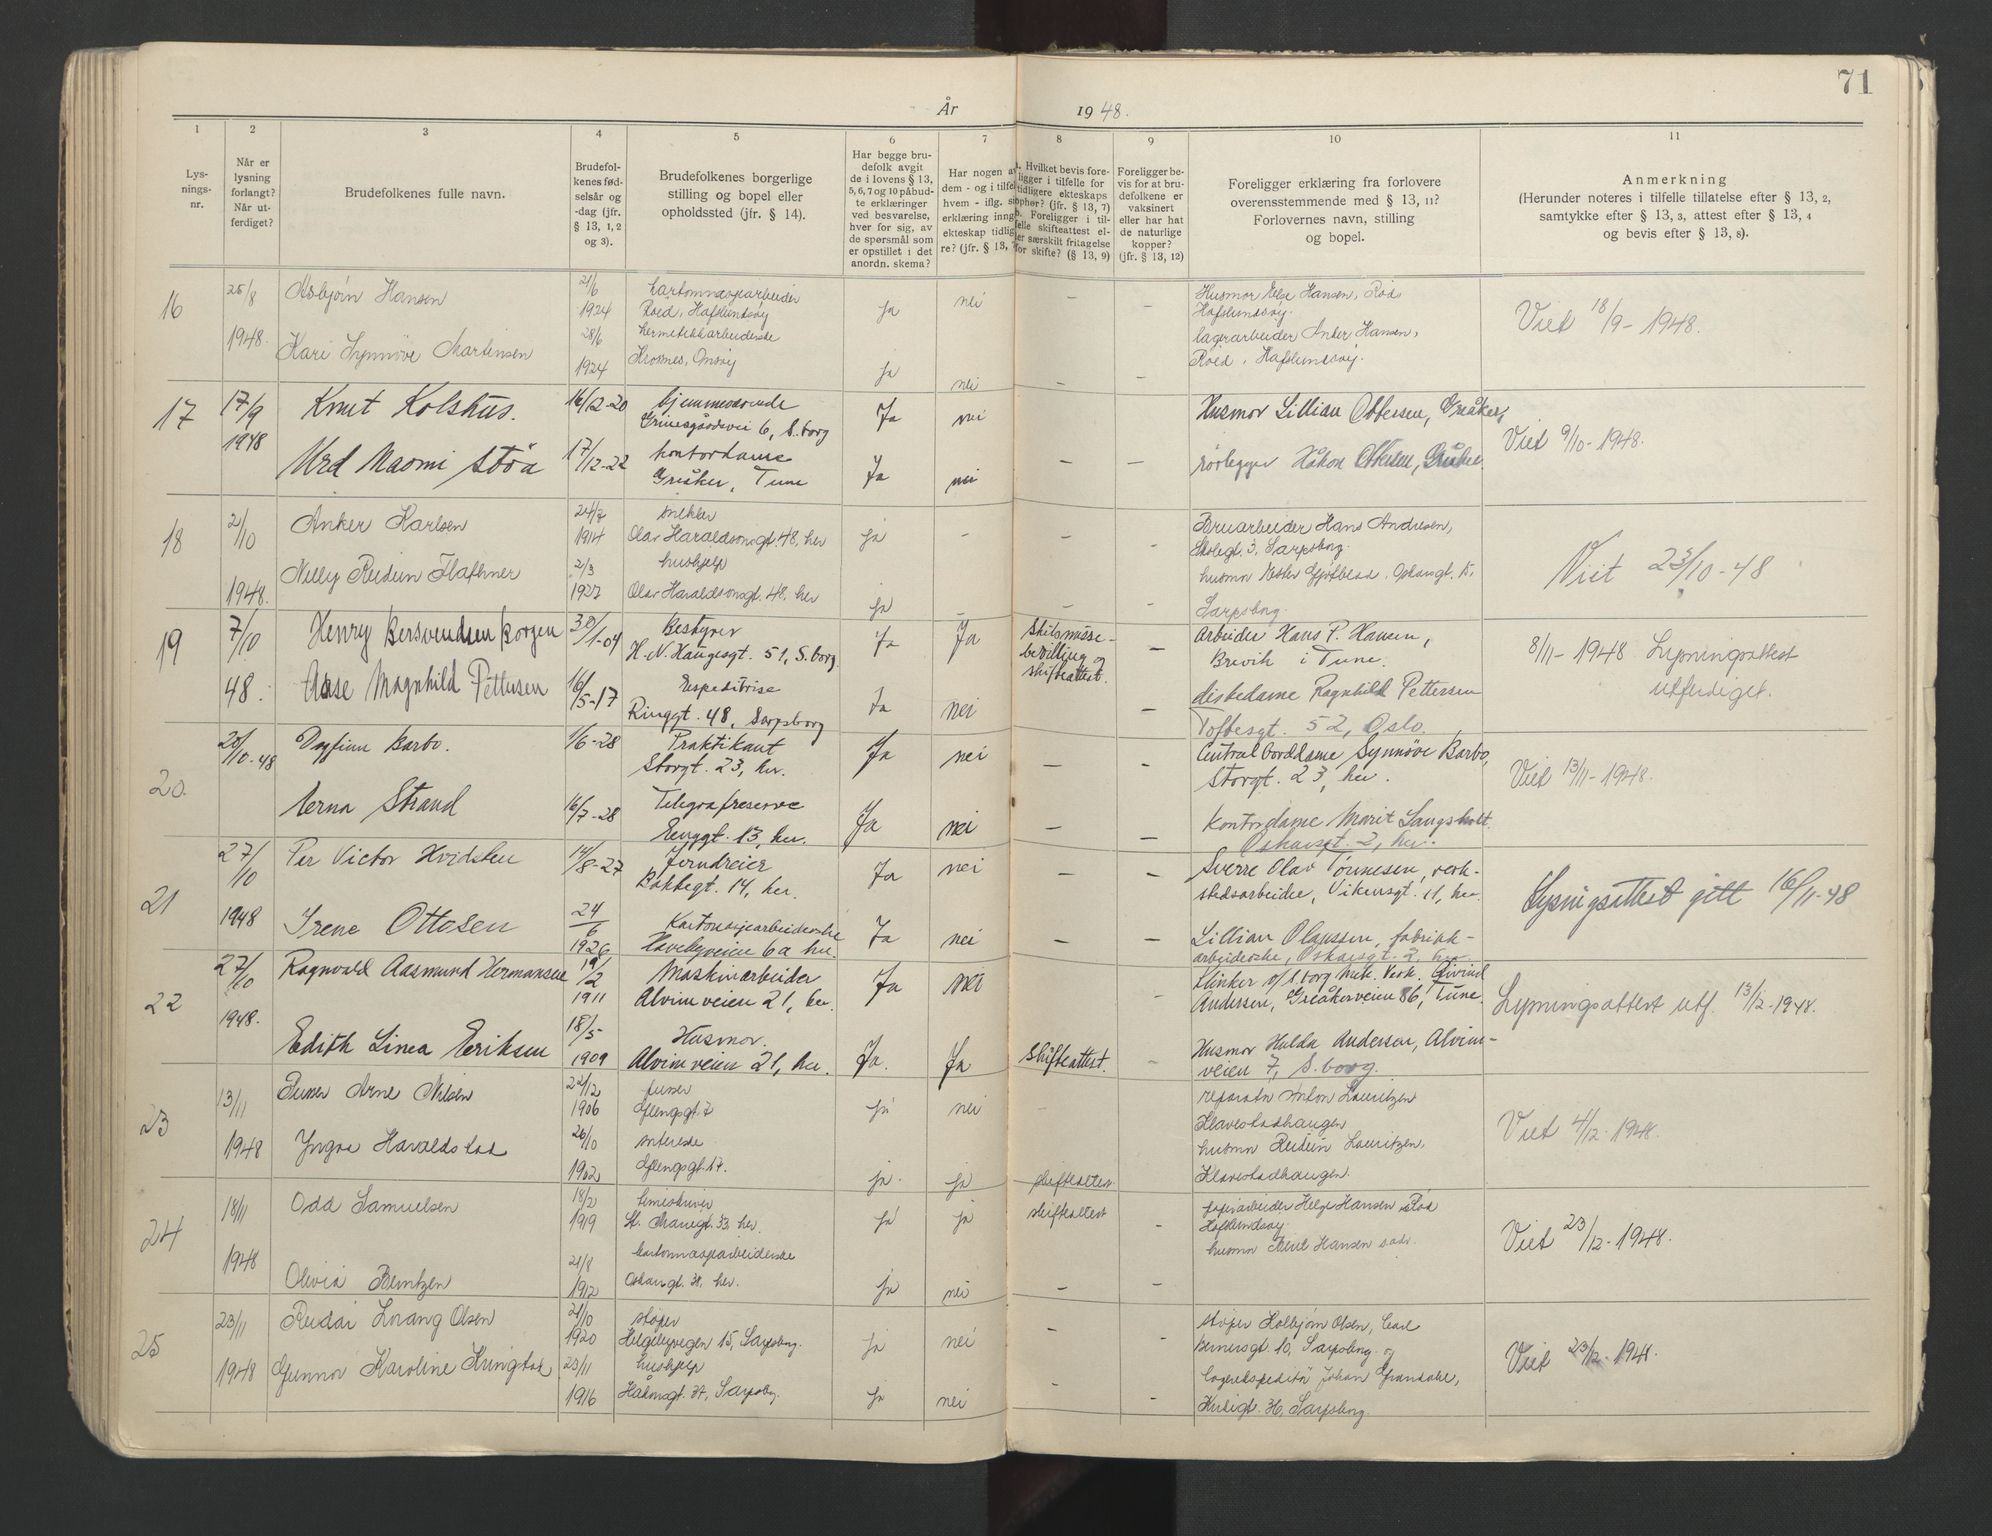 71
År 1948.
1 2 3 4 5 6 7 8 9 10 11
Lys-
nings-
nr.
Når er
lysning
forlangt?
Når ut-
ferdiget?
Brudefolkenes fulle navn.
Brudefol-
kenes fød-
selsår og
-dag (jfr.
§ 13, 1, 2
og 3).
Brudefolkenes borgerlige
stilling og bopel eller
opholdssted (jfr. § 14).
Har begge bru-
defolk avgit
de i lovens § 13,
5, 6, 7 og 10 påbud-
te erklæringer
ved besvarelse,
hver for sig, av
de spørsmål som
er opstillet i det
anordn. skema?
Har nogen av
dem - og i tilfel
hvem - iflg. s
erklæring inng
ekteskap tidlig
re? (jfr. § 13,
Hvilket bevis fore-
ligger i tilfelle for
tidligere ekteskaps
ophør? (jfr. § 13, 7)
b. Foreligger i til-
felle skifteattest el-
er særskilt fritagelse
for skifte? (§ 13, 9)
Foreligger be-
vis for at bru-
defolkene er
vaksinert
eller har hat
de naturlige
kopper?
(jfr. § 13, 12)
Foreligger erklæring fra forlovere
overensstemmende med § 13, 11?
Forlovernes navn, stilling
og bopel.
Anmerkning
(Herunder noteres i tilfelle tillatelse efter § 13, 2,
samtykke efter § 13, 3, attest efter § 13, 4
og bevis efter § 13, 8).
16 25/8 Asbjørn Hansen 21/6 kartonnagearbeider ja nei – – Husmor Else Hansen, Röd
1924 Röed, Hafslundsøy Hafslundsøy.
1948. Kari Synnöve Martinsen 28/6 hermetikkarbeiderske lagerarbeider Anker Hansen, Viet 18/9-1948.
1924 Krosnes, Onsøy ja nei – – Röed, Hafslundsøy.
17 17/9 Knut Kolshus. 16/12-20 hjemmeværende Ja nei Husmor Lillian Ottersen, Greåker,
1948 Grinesgårdsvei 6, S.borg Viet 9/10-1948.
Urd Naomi Störa 17/12-22 kontordame Ja nei – – rørlegger Håkon Ottersen, Greåker.
Greåker, Tune
18 2/10 Anker Karlsen 24/7 snekker ja – – – Bruarbeider Hans Andresen,
1914 Olav Haraldsonsgt. 48, her Skolegt. 3, Sarpsborg.
Nelly Reidun Flathmer 2/3 hushjelp Viet 23/10-48
1948. 1927 Olav Haraldsonsgt. 48, her ja – – – Sarpsborg.
19 7/10 Henry Bersvendsen Borgen 30/1-04 Bestyrer Ja Ja Skilsmisse- – Arbeider Hans P. Hansen,
H.N. Haugesgt. 51, S.borg. bevilling og Brevik i Tune. 8/11-1948 Lysningsattest
48. Aase Magnhild Pettersen 16/5-17 Ekspeditrise Ja nei skifteattest. – diskedame Ragnhild Pettersen utferdiget.
Ringgt. 48, Sarpsborg Toftesgt. 52, Oslo.
20. 20/10-48 Dagfinn Barbo. 1/6-28 Praktikant Ja nei – – Centralborddame Synnöve Barbo,
Storgt. 23, her. Storgt. 23, her. Viet 13/11-1948.
Erna Strand 16/7-28 Telegrafreserve Ja nei – – Kontordame Marit Langsholt.
Enggt. 13, her. Oskarsgt. 2, her.
21 27/10 Per Victor Hvidsten 14/8-27 Jerndreier Ja nei – – Sverre Olav Tönnesen, verk-
Bakkegt. 14, her. stedsarbeider, Vikensgt. 11, her.
1948 Irene Ottosen 24/6 Kartonasjearbeiderske Ja nei – – Lillian Olaussen, fabrikk- Lysningsattest gitt 16/11-48
1926 Havebyveien 6a her. arbeiderske, Oskarsgt. 2, her.
22 27/10 Ragnvald Aasmund Hermansen 19/2 Maskinarbeider Ja nei – Klinker v/S.borg Mek. Verk. Eivind
1911 Alvimveien 21, her. Andersen, Greåkerveien 86, Tune.
1948. Edith Linea Eriksen 18/5 Husmor. Ja. Ja skifteattest. – Husmor Hulda Andersen, Alvim- Lysningsattest utf. 13/12-1948.
1909 Alvimveien 21, her. veien 7, S.borg.
23 13/11 Arne Nilsen 22/12 ja nei – reparatør Anton Lauritzen
1906 Glengsgt 7 Klavestadhaugen
1948 Yngva Haraldstad 26/10 husmor Reidun Lauritzen, Viet 4/12-1948.
1902 Glengsgt. 17. ja. ja skifteattest Klavestadhaugen.
24 18/11 Odd Samuelsen 18/2 ja ja skifteattest – papirarbeider Helge Hansen Röd
1919 St. Mariegt. 33 her. Hafslundsøy
1948 21/8 kartonnasjearbeiderske Viet 23/12-1948.
Olivia Berntzen 1912 Oskarsgt. 31, her. ja nei – –
25 23/11 Reidar Lorang Olsen 21/10 støper ja nei – – støper Kolbjørn Olsen, Carl
1920 Helgebyvegen 15, Sarpsborg. Bernersgt. 10, Sarpsborg og
1948 Gunnor Karoline Kringstad 23/11 hushjelp lagerekspeditør Johan Grandalen, Viet 23/12-1948.
1916 Håkonsgt. 37, Sarpsbg. ja nei – – 36, Sarpsborg.